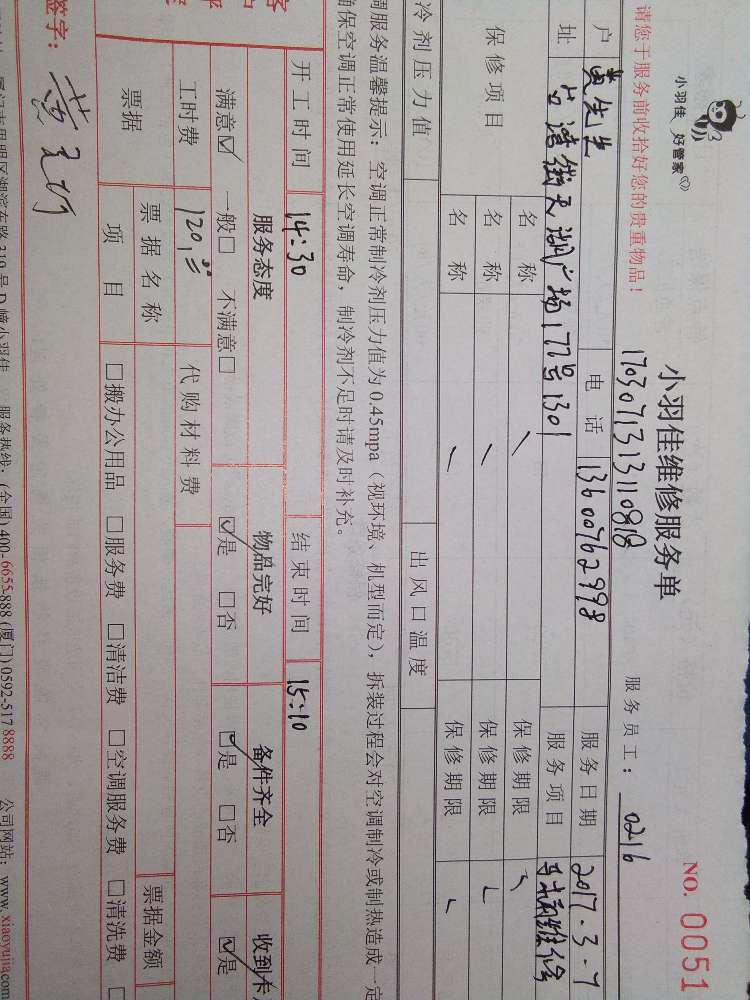 小羽佳 好管家
小羽佳维修服务单
NO. 0051
请您于服务前收拾好您的贵重物品！
170307131310818
服务员工： 0216
户 黄先生 电话 13600762998 服务日期 2017.3.7
址 台湾街天湖广场177号1301 服务项目
保修项目
名称 保修期限
名称 保修期限
名称 保修期限
冷剂压力值 出风口温度
调服务温馨提示：空调正常制冷剂压力值为0.45mpa（视环境、机型而定），拆装过程会对空调制冷或制热造成一定
确保空调正常使用延长空调寿命，制冷剂不足时请及时补充。
开工时间 14:30 结束时间 15:10
服务态度 物品完好 备件齐全 收到卡
满意☑ 一般□ 不满意□ ☑是 □否 ☑是 □否 ☑是
工时费 120.00 代购材料费
票据 票据名称 票据金额
项目 □搬办公用品 □服务费 □清洁费 □空调服务费 □清洗费 □
签字：
厦门市思明区湖滨东路319号D幢小羽佳 服务热线：(全国)400-6655-888 (厦门)0592-517 8888 公司网站：www.xiaoyujia.com